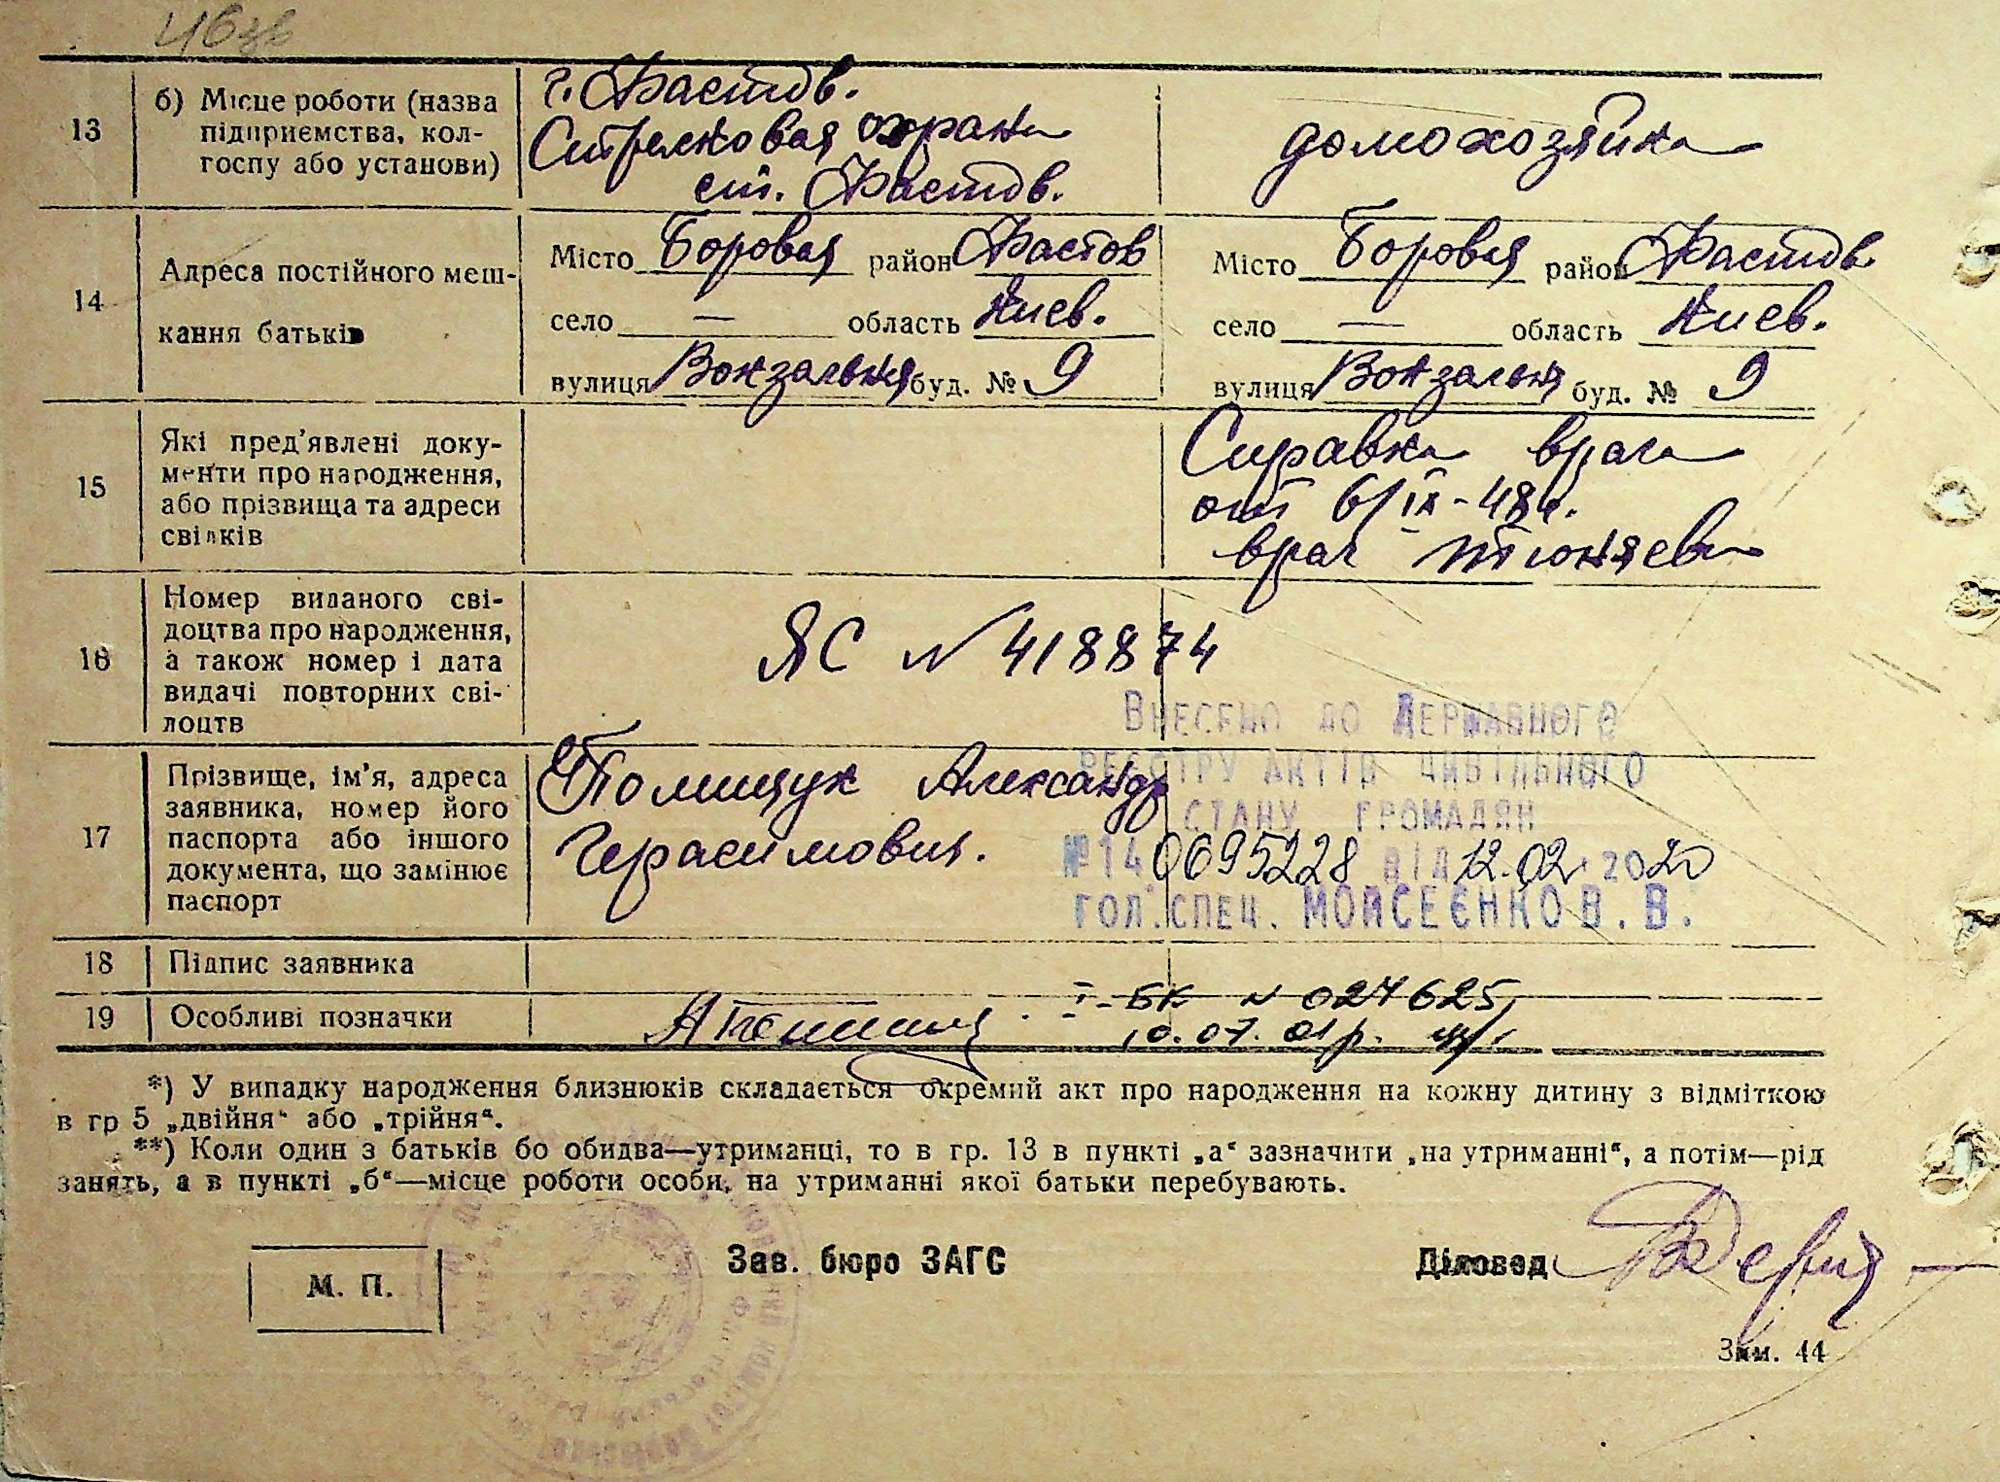 46зв
13 б) Місце роботи (назва
підприємства, кол-
госпу або установи)
г. Фастов.
Стрелковая охрана
ст. Фастов.
домохозяйка
14 Адреса постійного меш-
кання батьків
Місто Боровая район Фастов
село — область Киев.
вулиця Вокзальная буд. № 9
Місто Боровая район Фастов.
село — область Киев.
вулиця Вокзальня буд. № 9
15 Які пред'явлені доку-
менти про народження,
або прізвища та адреси
свідків
Справка врача
от 6/IX-48г.
врач Тюняева
16 Номер виданого сві-
доцтва про народження,
а також номер і дата
видачі повторних сві-
доцтв
ЯС № 418874
Внесено до Державного
реєстру актів цивільного
стану громадян
№ 14 0695228 від 12.02 2020
гол. спец. Мойсеєнко В. В.
17 Прізвище, ім'я, адреса
заявника, номер його
паспорта або іншого
документа, що замінює
паспорт
Полищук Александр
Герасимович.
18 Підпис заявника
19 Особливі позначки
І-БК № 027625
10.07.01р.
*) У випадку народження близнюків складається окремий акт про народження на кожну дитину з відміткою
в гр 5 „двійня“ або „трійня“.
**) Коли один з батьків бо обидва—утриманці, то в гр. 13 в пункті „а“ зазначити „на утриманні“, а потім—рід
занять, а в пункті „б“—місце роботи особи, на утриманні якої батьки перебувають.
М. П.
Зав. бюро ЗАГС
Діловод
Зам. 44